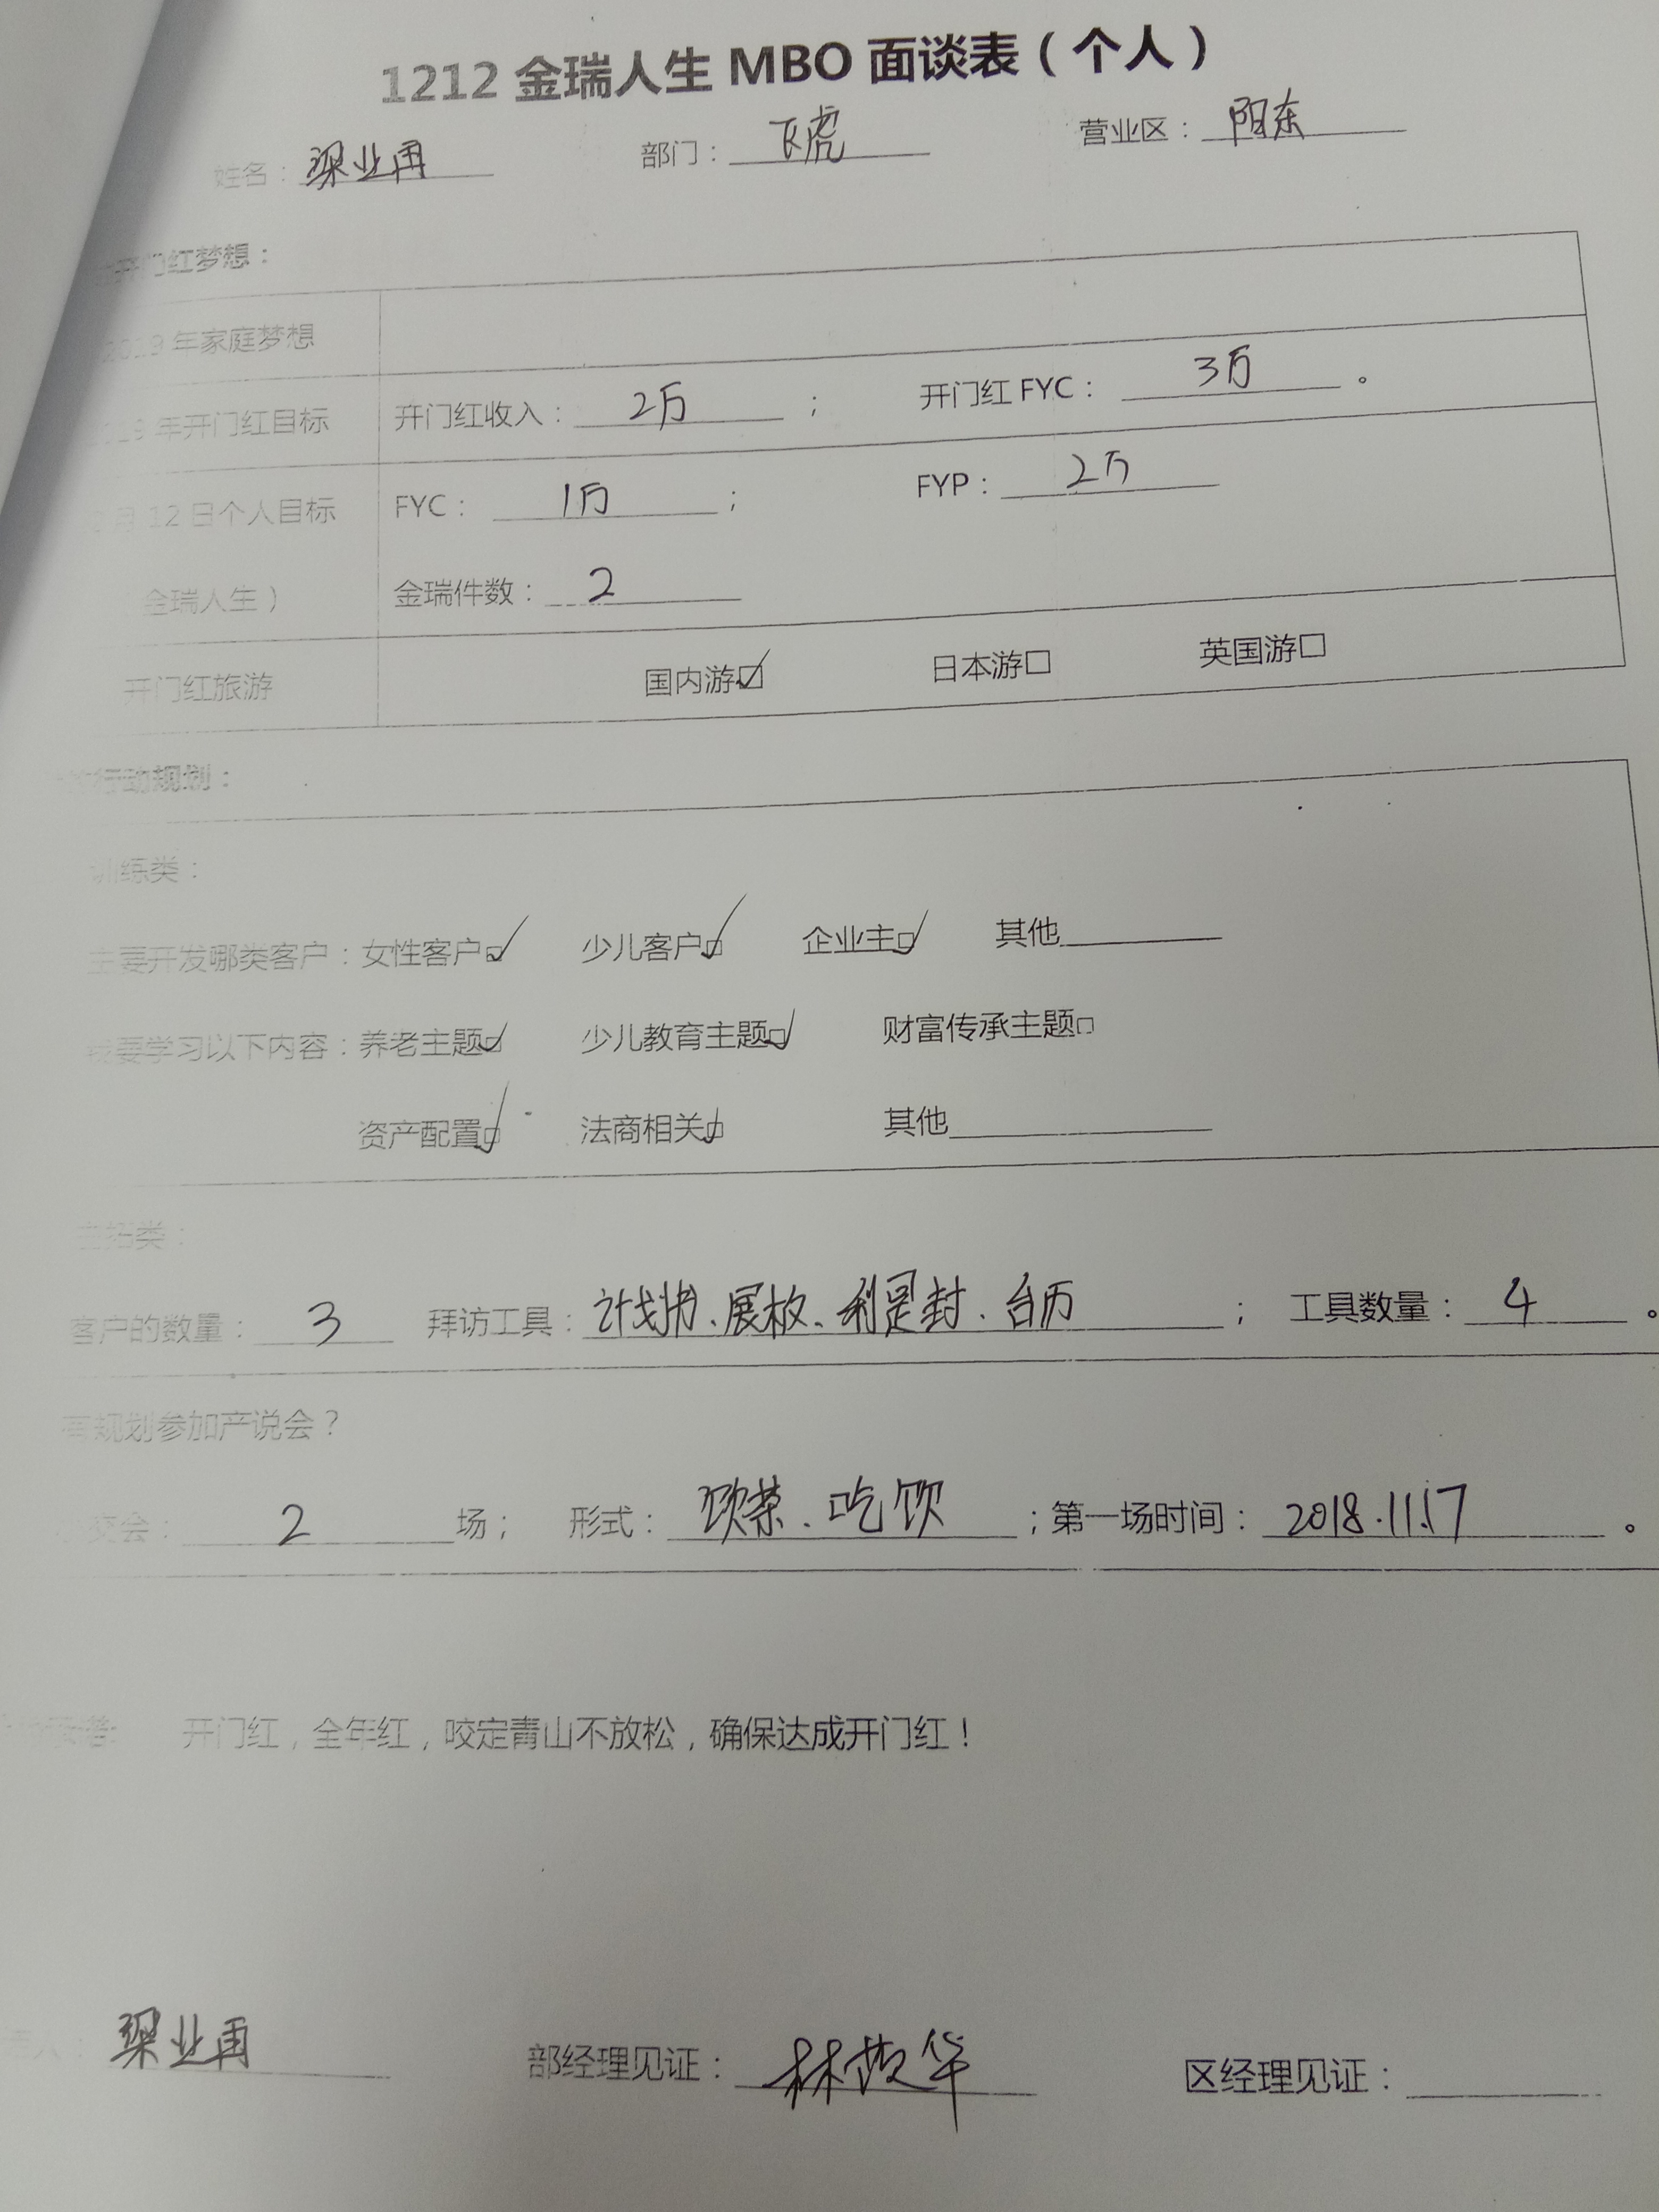 1212 金瑞人生 MBO 面谈表（个人）
姓名：梁业甬 部门：飞虎 营业区：阳东
开门红梦想：
2019 年家庭梦想
年开门红目标 开门红收入：2万； 开门红 FYC：3万。
月 12 日个人目标 FYC：1万； FYP：2万
金瑞人生） 金瑞件数：2
开门红旅游 国内游☑ 日本游□ 英国游□
行动规划：
训练类：
主要开发哪类客户：女性客户☑ 少儿客户☑ 企业主☑ 其他
要学习以下内容：养老主题☑ 少儿教育主题☑ 财富传承主题□
资产配置☑ 法商相关☑ 其他
类：
客户的数量：3 拜访工具：计划书、展板、利是封、台历； 工具数量：4。
规划参加产说会？
交会：2场； 形式：饮茶、吃饮；第一场时间：2018.11.17。
开门红，全年红，咬定青山不放松，确保达成开门红！
人：梁业甬 部经理见证：林 华 区经理见证：